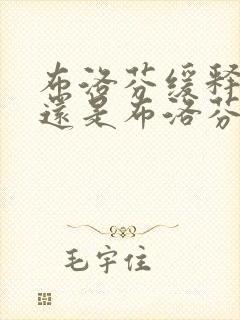 布洛芬缓释
還是布洛芬
毛宇住